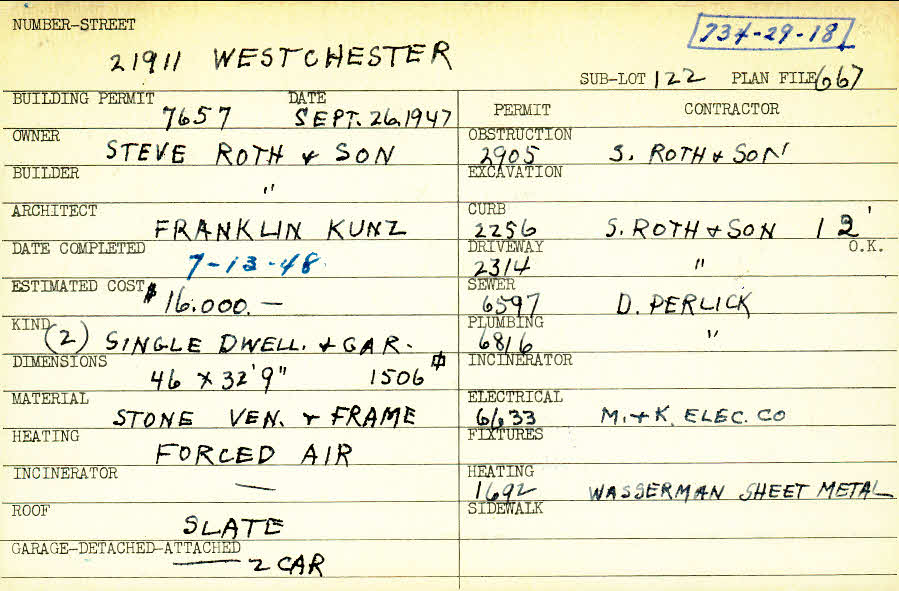 NUMBER-STREET
734-29-18
21911 WESTCHESTER
SUB-LOT 122 PLAN FILE 667
BUILDING PERMIT DATE
7657 SEPT. 26, 1947
OWNER
STEVE ROTH & SON
BUILDER
"
ARCHITECT
FRANKLIN KUNZ
DATE COMPLETED
7-13-48
ESTIMATED COST $
16.000. —
KIND
(2) SINGLE DWELL. & GAR.
DIMENSIONS
46 X 32'9" 1506 #
MATERIAL
STONE VEN. & FRAME
HEATING
FORCED AIR
INCINERATOR
—
ROOF
SLATE
GARAGE-DETACHED-ATTACHED
2 CAR
PERMIT CONTRACTOR
OBSTRUCTION
2905 S. ROTH & SON
EXCAVATION
CURB
2256 S. ROTH & SON 12'
DRIVEWAY O.K.
2314 "
SEWER
6597 D. PERLICK
PLUMBING
6816 "
INCINERATOR
ELECTRICAL
6633 M. & K. ELEC. CO
FIXTURES
HEATING
1692 WASSERMAN SHEET METAL
SIDEWALK